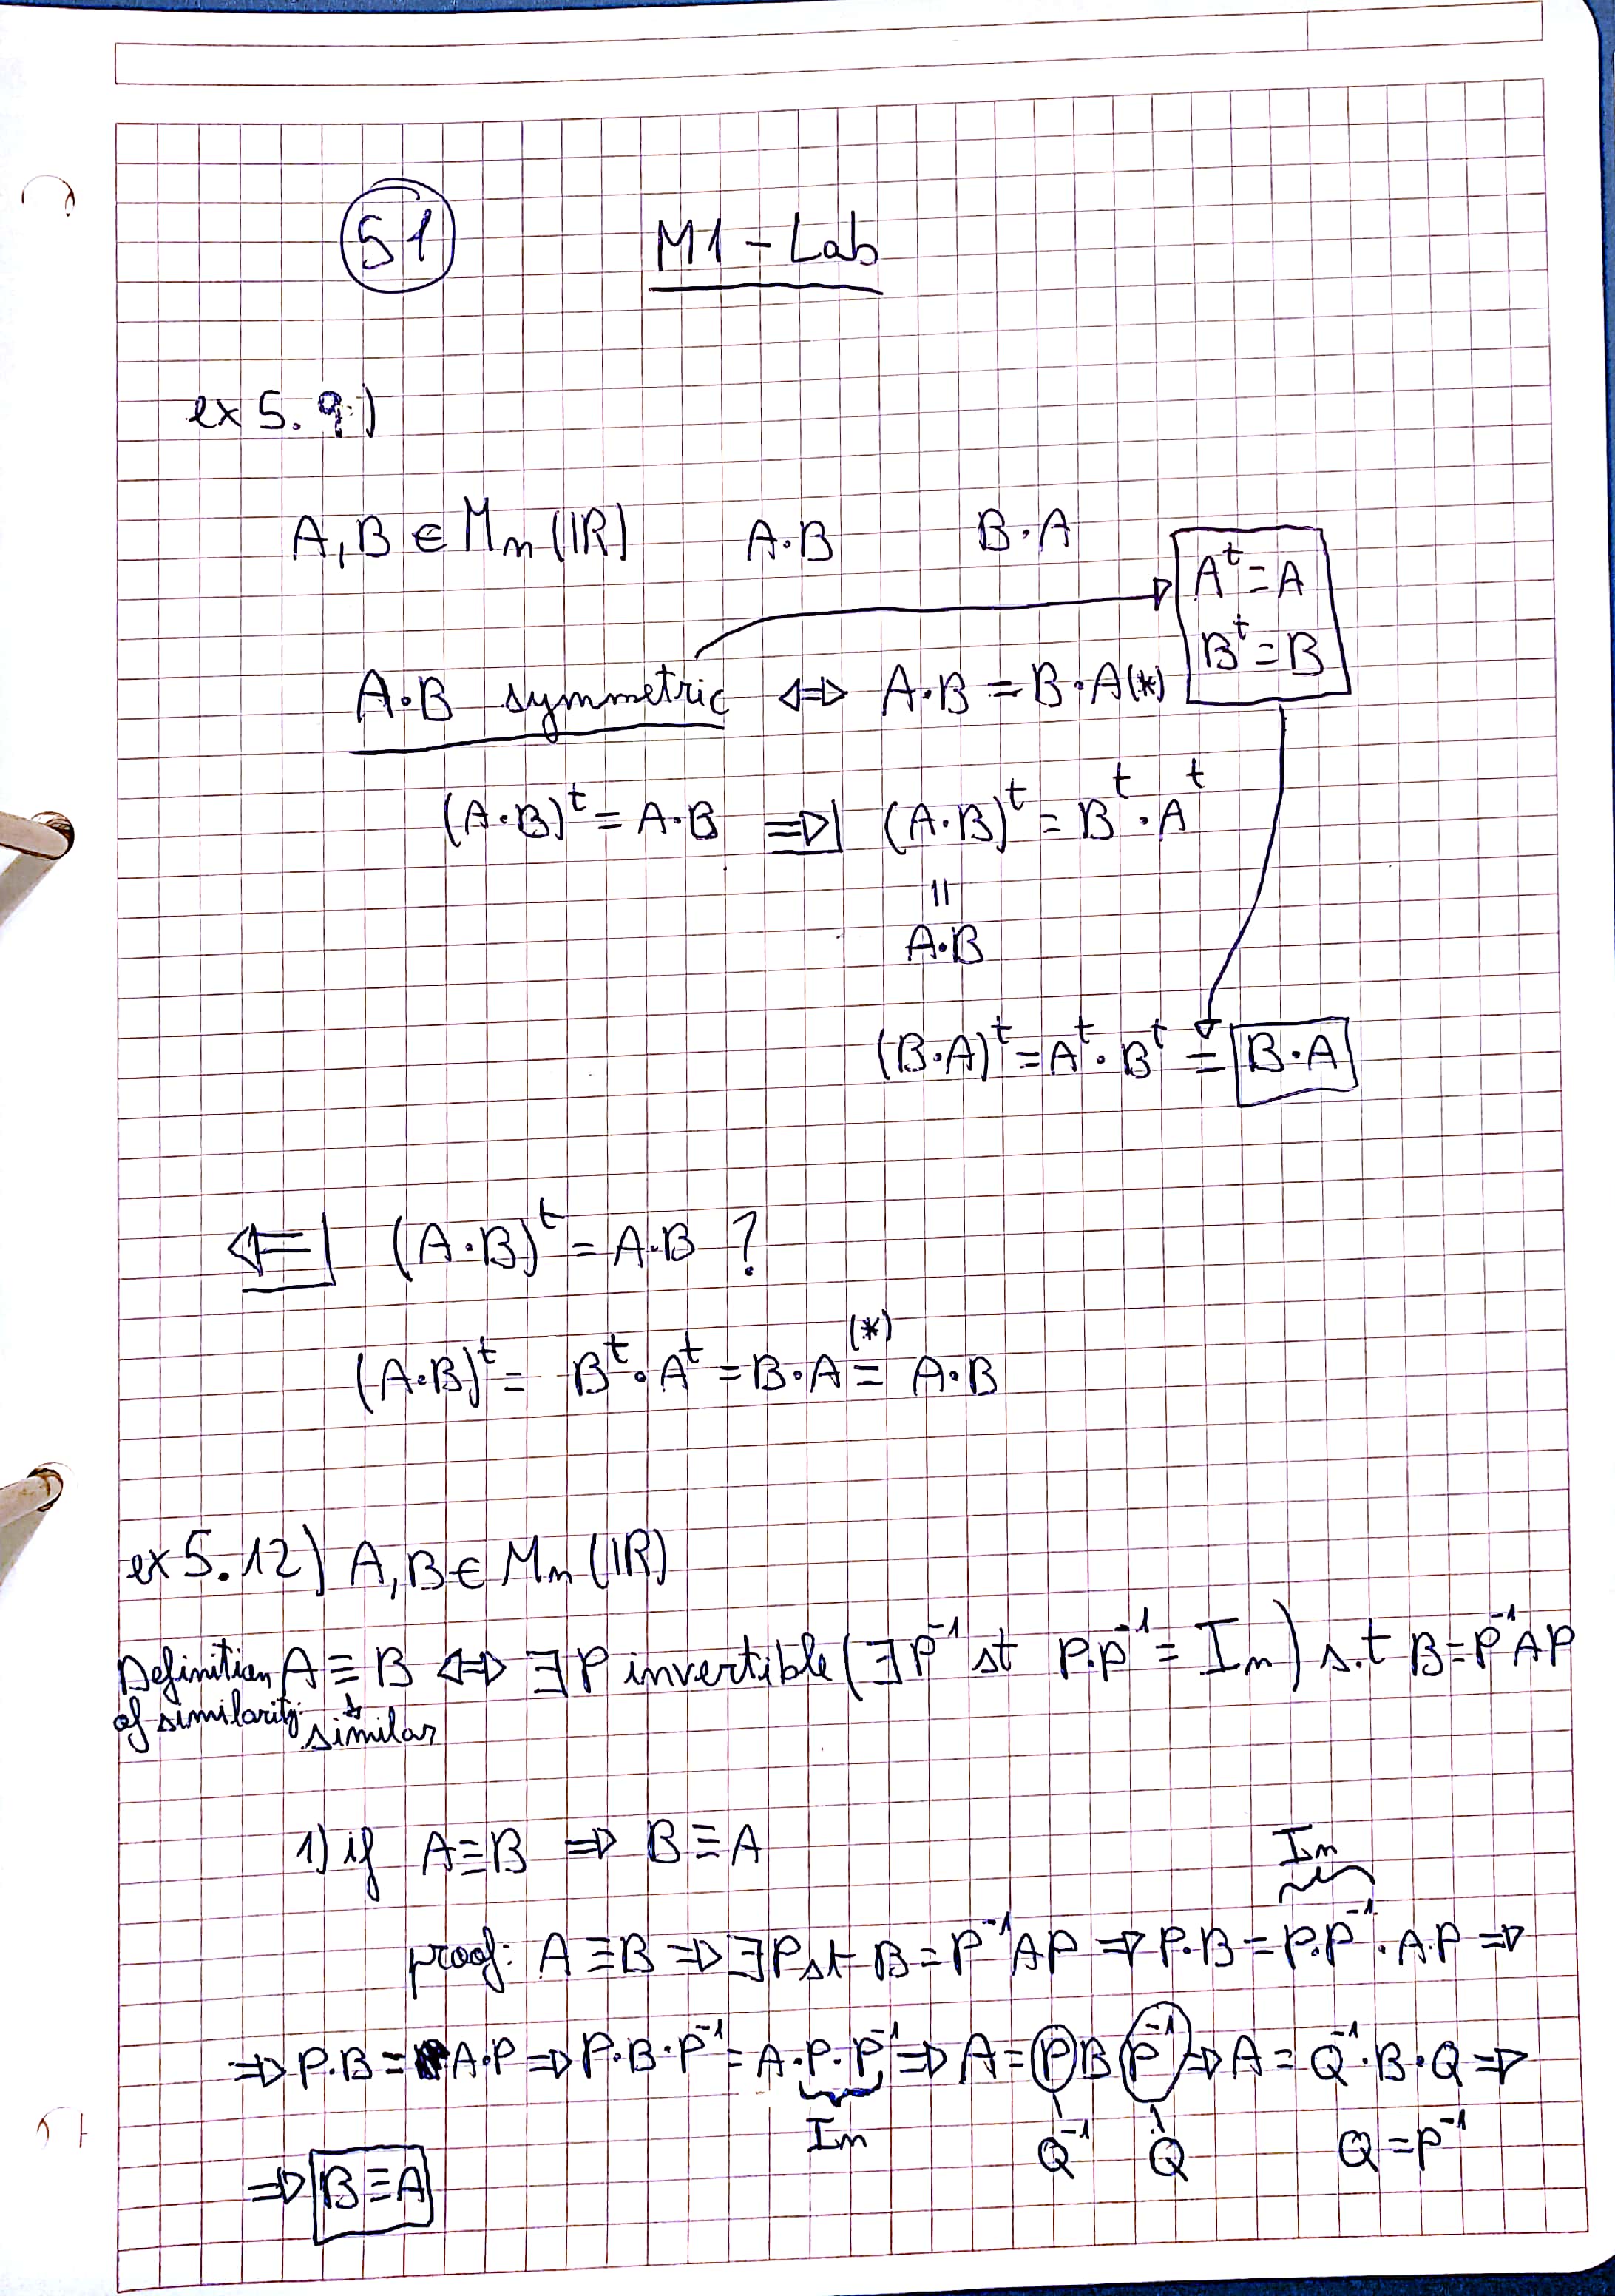 S1 M1-Lab
ex 5.9)
A, B ∈ Mn(IR) A·B B·A
A^t = A
B^t = B
A·B symmetric ⇔ A·B = B·A (*)
(A·B)^t = A·B ⇒| (A·B)^t = B^t · A^t
=
A·B
(B·A)^t = A^t · B^t = B·A
⇐| (A·B)^t = A·B ?
(A·B)^t = B^t · A^t = B·A (*)= A·B
ex 5.12) A, B ∈ Mn(IR)
Definition A ≡ B ⇔ ∃ P invertible (∃ P^-1 st P.P^-1 = In) s.t B = P^-1 A P
of similarity: similar
1) if A ≡ B ⇒ B ≡ A
In
proof: A ≡ B ⇒ ∃ P st B = P^-1 A P ⇒ P.B = P.P^-1 . A.P ⇒
⇒ P.B = A·P ⇒ P·B·P^-1 = A·P·P^-1 ⇒ A = P B P^-1 ⇒ A = Q^-1·B·Q ⇒
In Q^-1 Q Q = P^-1
⇒ B ≡ A